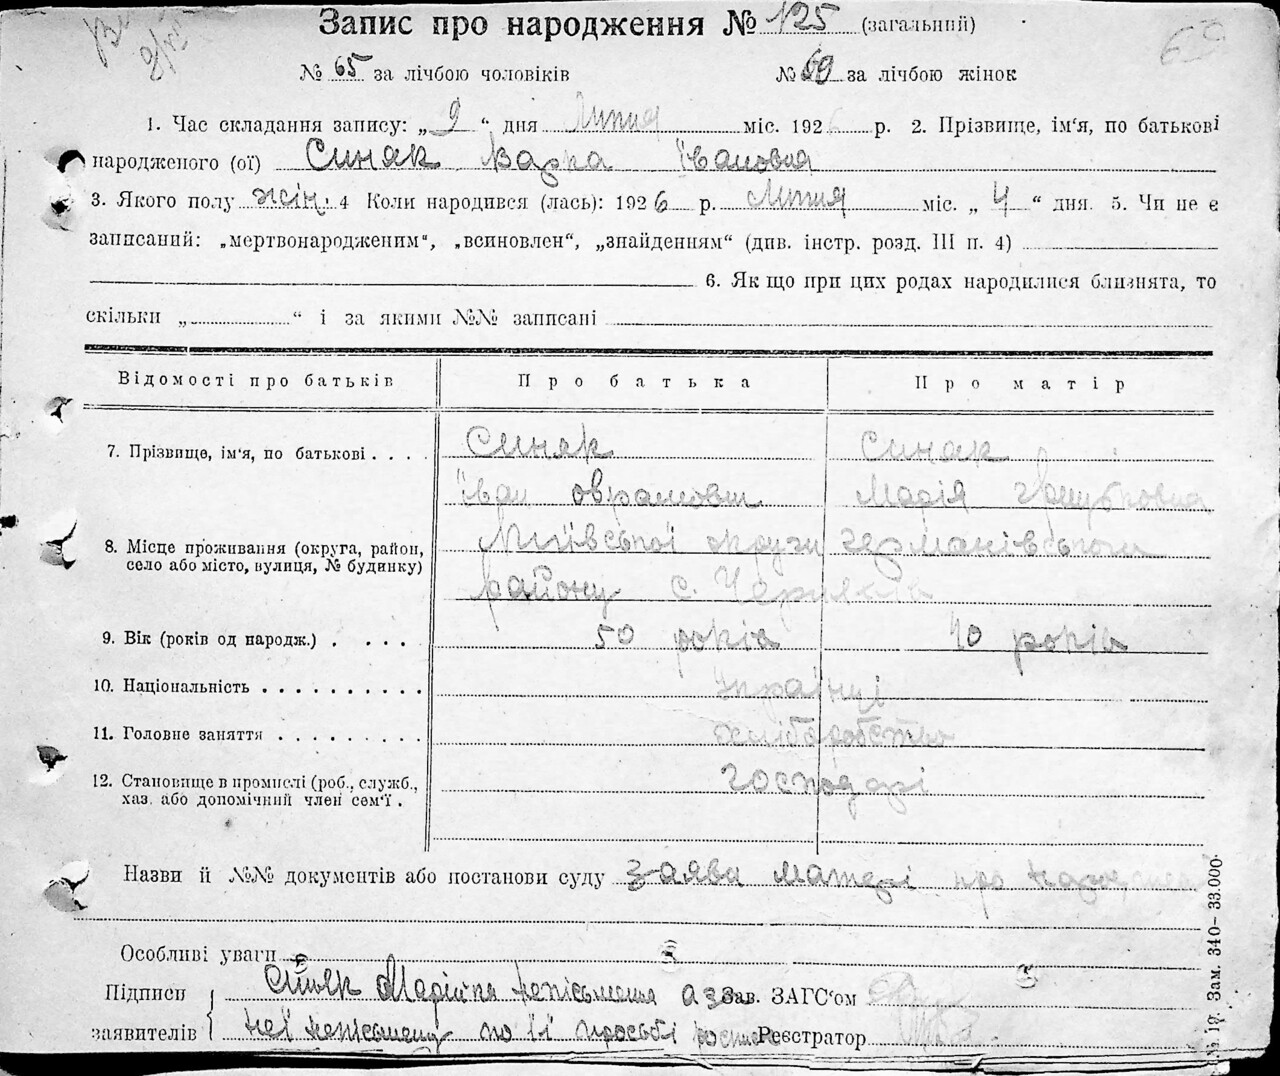 Запис про народження № 125 (загальний)
№ 65 за лічбою чоловіків № 60 за лічбою жінок
1. Час складання запису: „ 9 “ дня Липня міс. 1926 р. 2. Прізвище, ім'я, по батькові
народженого (ої) Синяк Варка Івановна
3. Якого полу жін. 4 Коли народився (лась): 1926 р. Липня міс. „ 4 “ дня. 5. Чи не є
записаний: „мертвонародженим“, „всиновлен“, „знайденням“ (див. інстр. розд. III п. 4)
6. Як що при цих родах народилися близнята, то
скільки „ “ і за якими №№ записані
Відомості про батьків Про батька Про матір
7. Прізвище, ім'я, по батькові . . . . Синяк Синяк
Іван Марія
8. Місце проживання (округа, район,
село або місто, вулиця, № будинку)
Київської округи Германівського
району с.
9. Вік (років од народж.) . . . . . 50 років 40 років
10. Національність . . . . . . . . . . Українці
11. Головне заняття . . . . . . . . . хліборобство
12. Становище в промислі (роб., служб.,
хаз. або допомічний член сем'ї .
господарі
Назви й №№ документів або постанови суду заява матері про
Особливі уваги
Підписи Синяк а за Зав. ЗАГС'ом
заявителів неї по її просьбі Реєстратор
Зам. 340– 33.000·